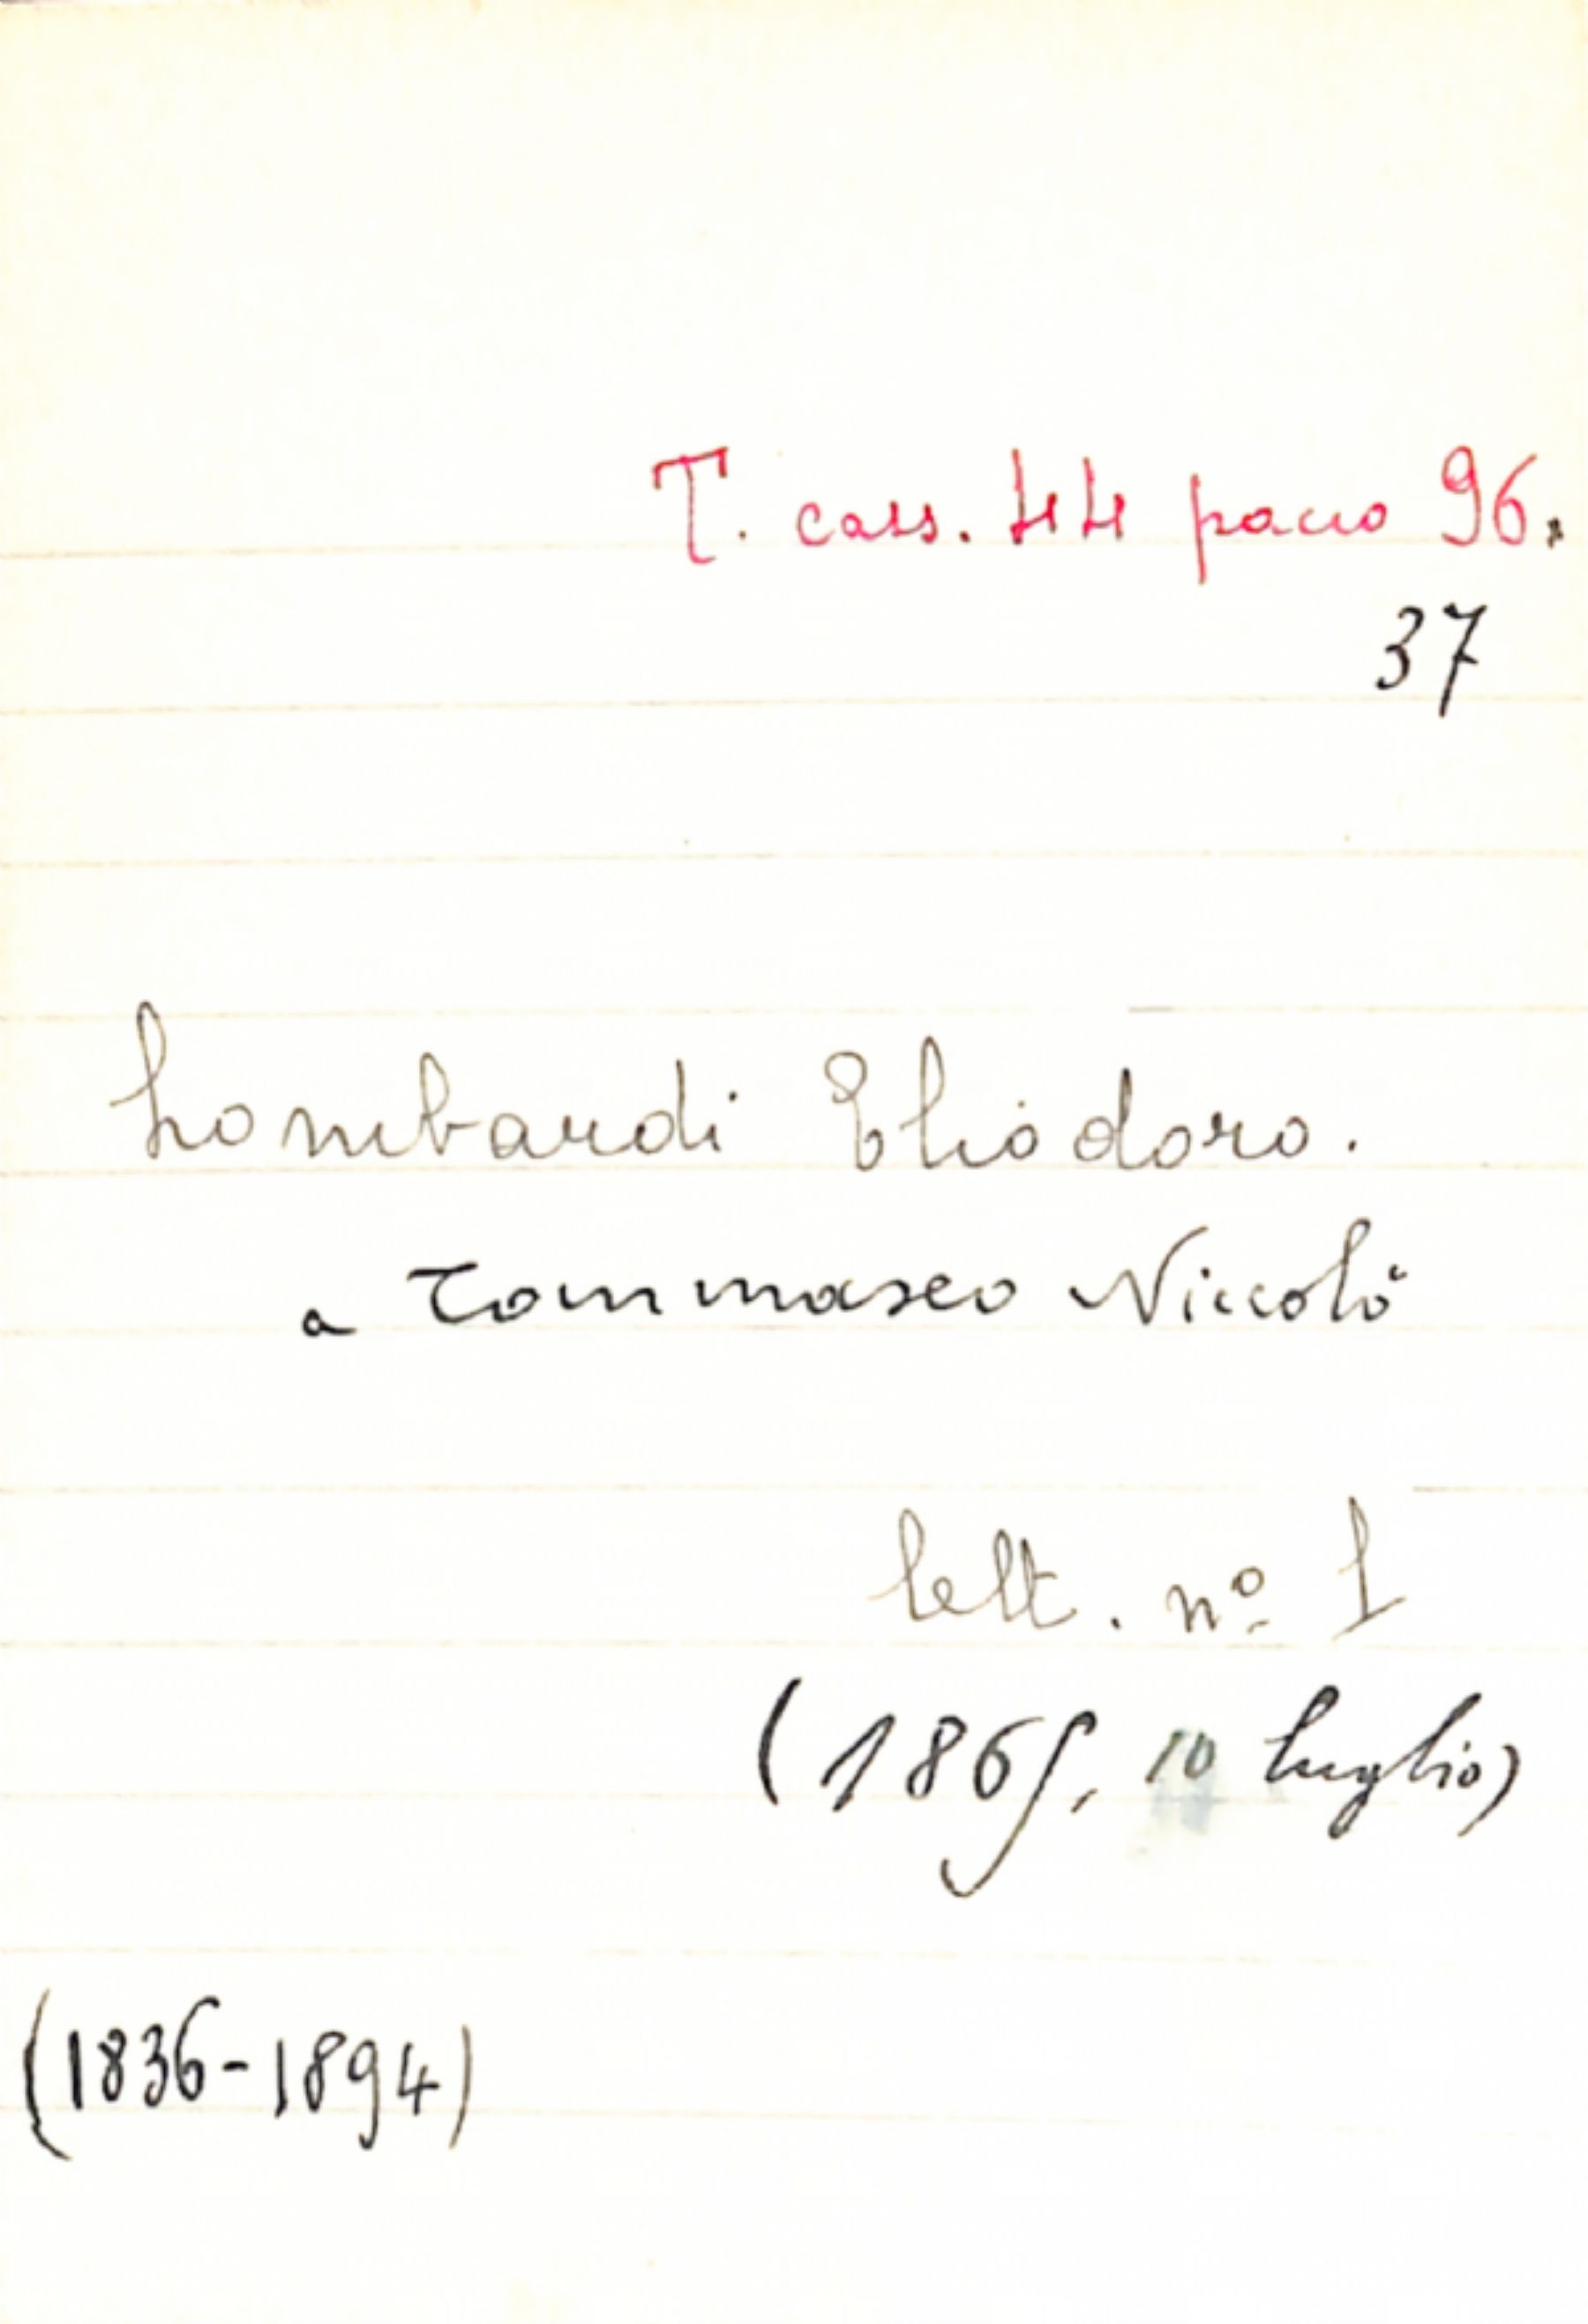 T. cass. 44 pacco 96.
37
Lombardi Eliodoro.
a Tommaseo Niccolò
lett. nº 1
(1865, 10 luglio)
(1836-1894)